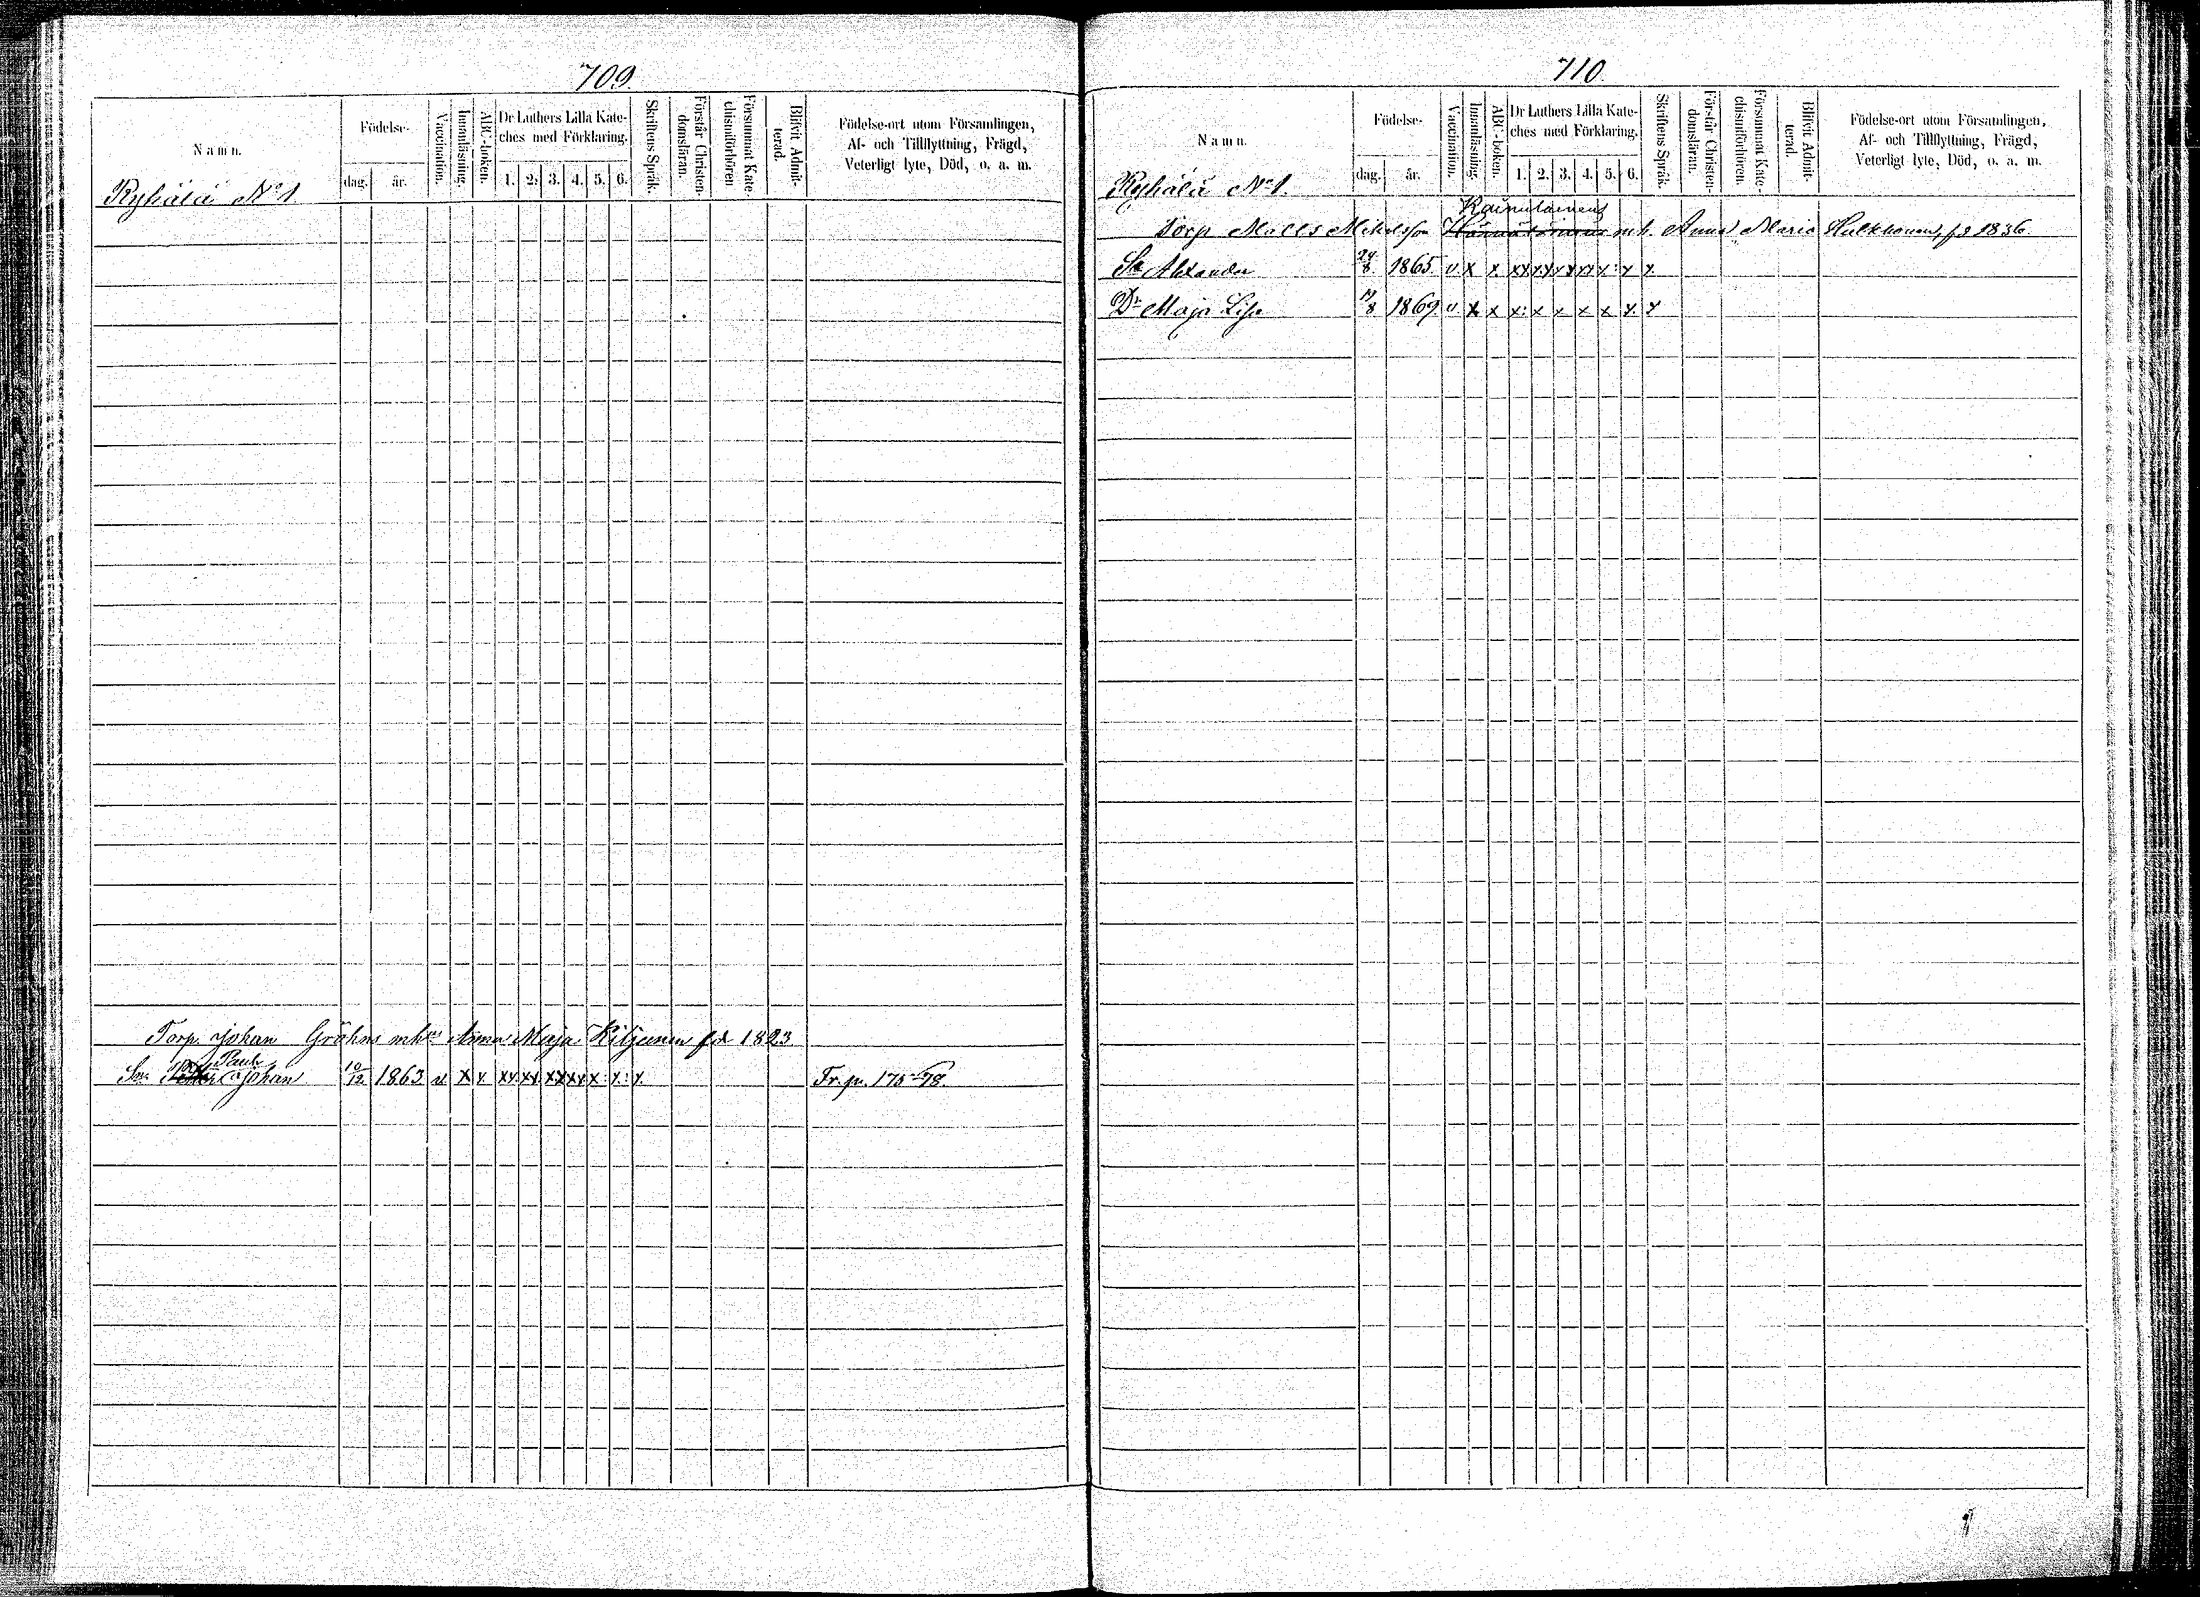 709.
Namn.
Födelse-
dag.
år.
Vaccination.
Innanläsning.
ABC-boken.
Dr Luthers Lilla Kate-
ches med Förklaring.
1. 2. 3. 4. 5. 6.
Skriftens Språk.
Förstår Christen-
domsläran.
Försummat Kate-
chismiförhören
Blifvit Admit-
terad.
Födelse-ort utom Församlingen,
Af- och Tillflyttning, Frägd,
Veterligt lyte, Död, o. a. m.
Ryhälä No 1.
Torp. Johan Gröhns mhus Anna Maja Kiljunen fd 1823
Paul
Son Johan 10/12 1863 v x x xx xx xx xx x: x: x. Fr. p. 175-78
710
Namn.
Födelse-
dag.
år.
Vaccination.
Innanläsning.
ABC-boken.
Dr Luthers Lilla Kate-
ches med Förklaring.
1. 2. 3. 4. 5. 6.
Skriftens Språk.
Förstår Christen-
domsläran.
Försummat Kate-
chismiförhören.
Blifvit Admit-
terad.
Födelse-ort utom Församlingen,
Af- och Tillflyttning, Frägd,
Veterligt lyte, Död, o. a. m.
Ryhälä No 1.
Kainulainens
Torp Matts Mikelsson mh. Anna Maria Hulkkonen, fd 1836
Sn Alexander 24/8 1865 v. x x xx xx xx xx x: x x
Dr Maja Lisa 17/8 1869 v. x x x: x x x x x. x